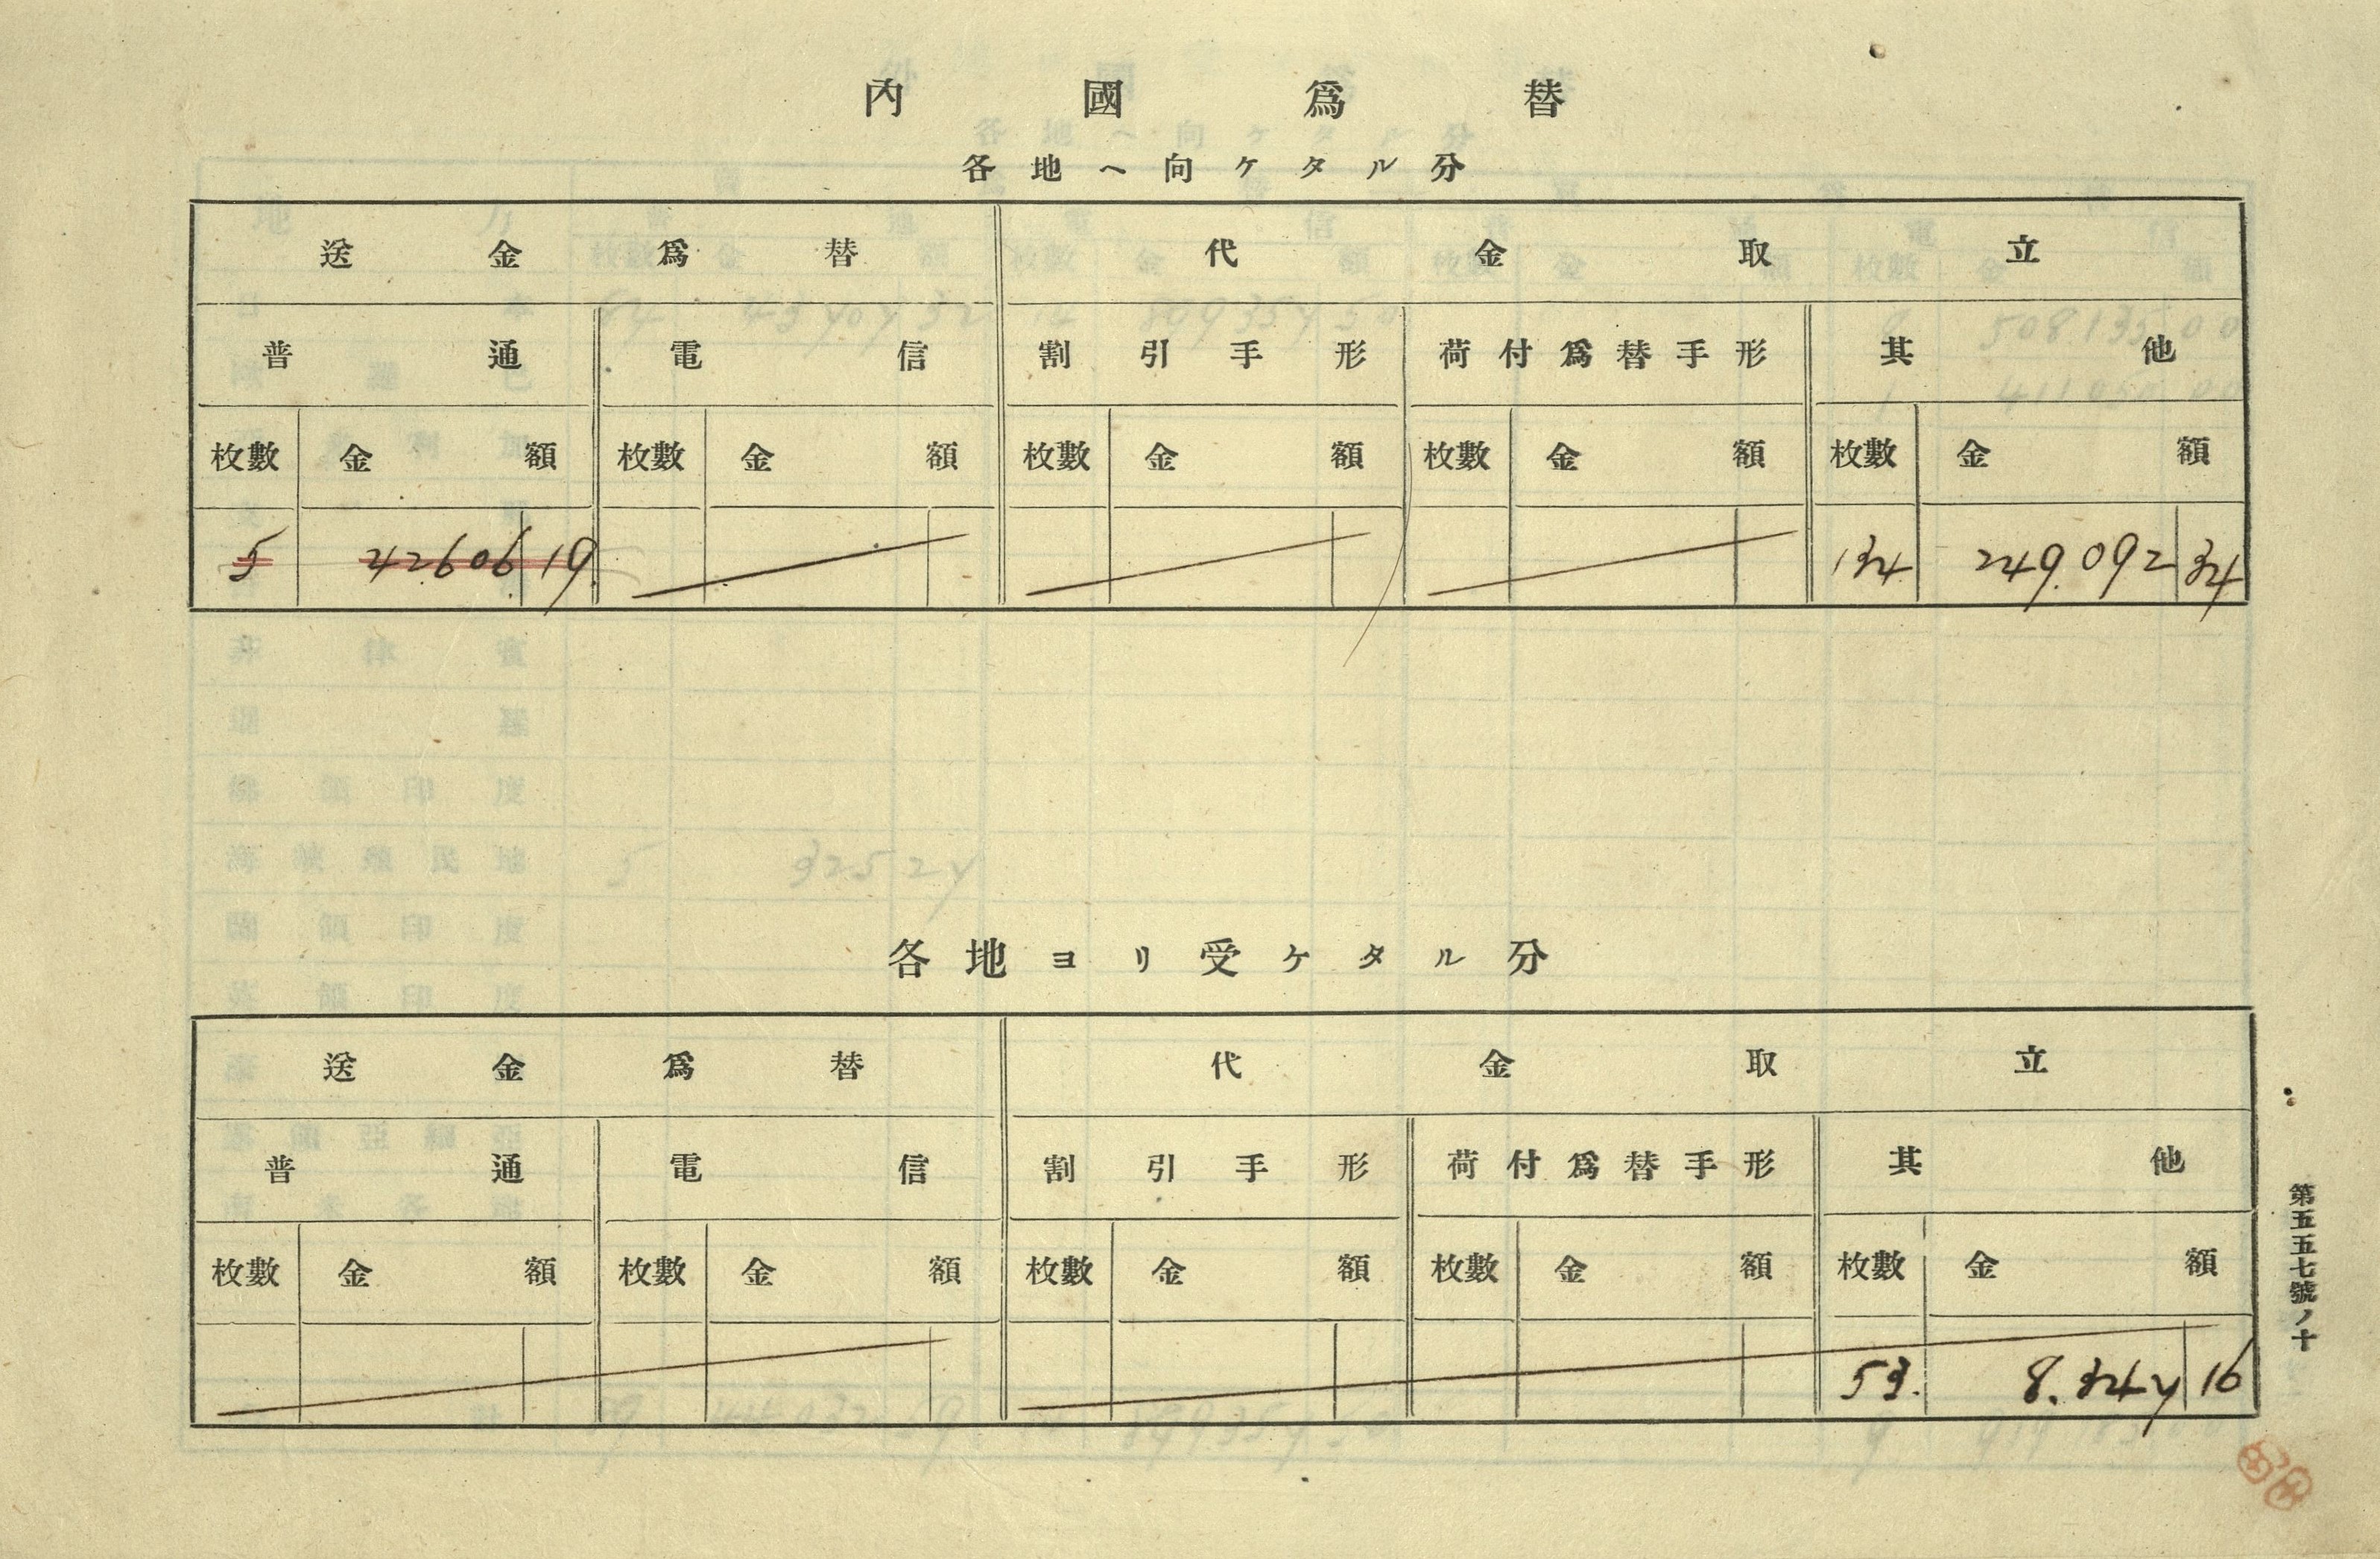 內國爲替
各地ヘ向ケタル分
送金爲替 代金取立
普通 電信 割引手形 荷付爲替手形 其他
枚數 金額 枚數 金額 枚數 金額 枚數 金額 枚數 金額
5 42606 19 134 249.092 34
各地ヨリ受ケタル分
送金爲替 代金取立
普通 電信 割引手形 荷付爲替手形 其他
枚數 金額 枚數 金額 枚數 金額 枚數 金額 枚數 金額
53. 8.347 16
第五五七號ノ十